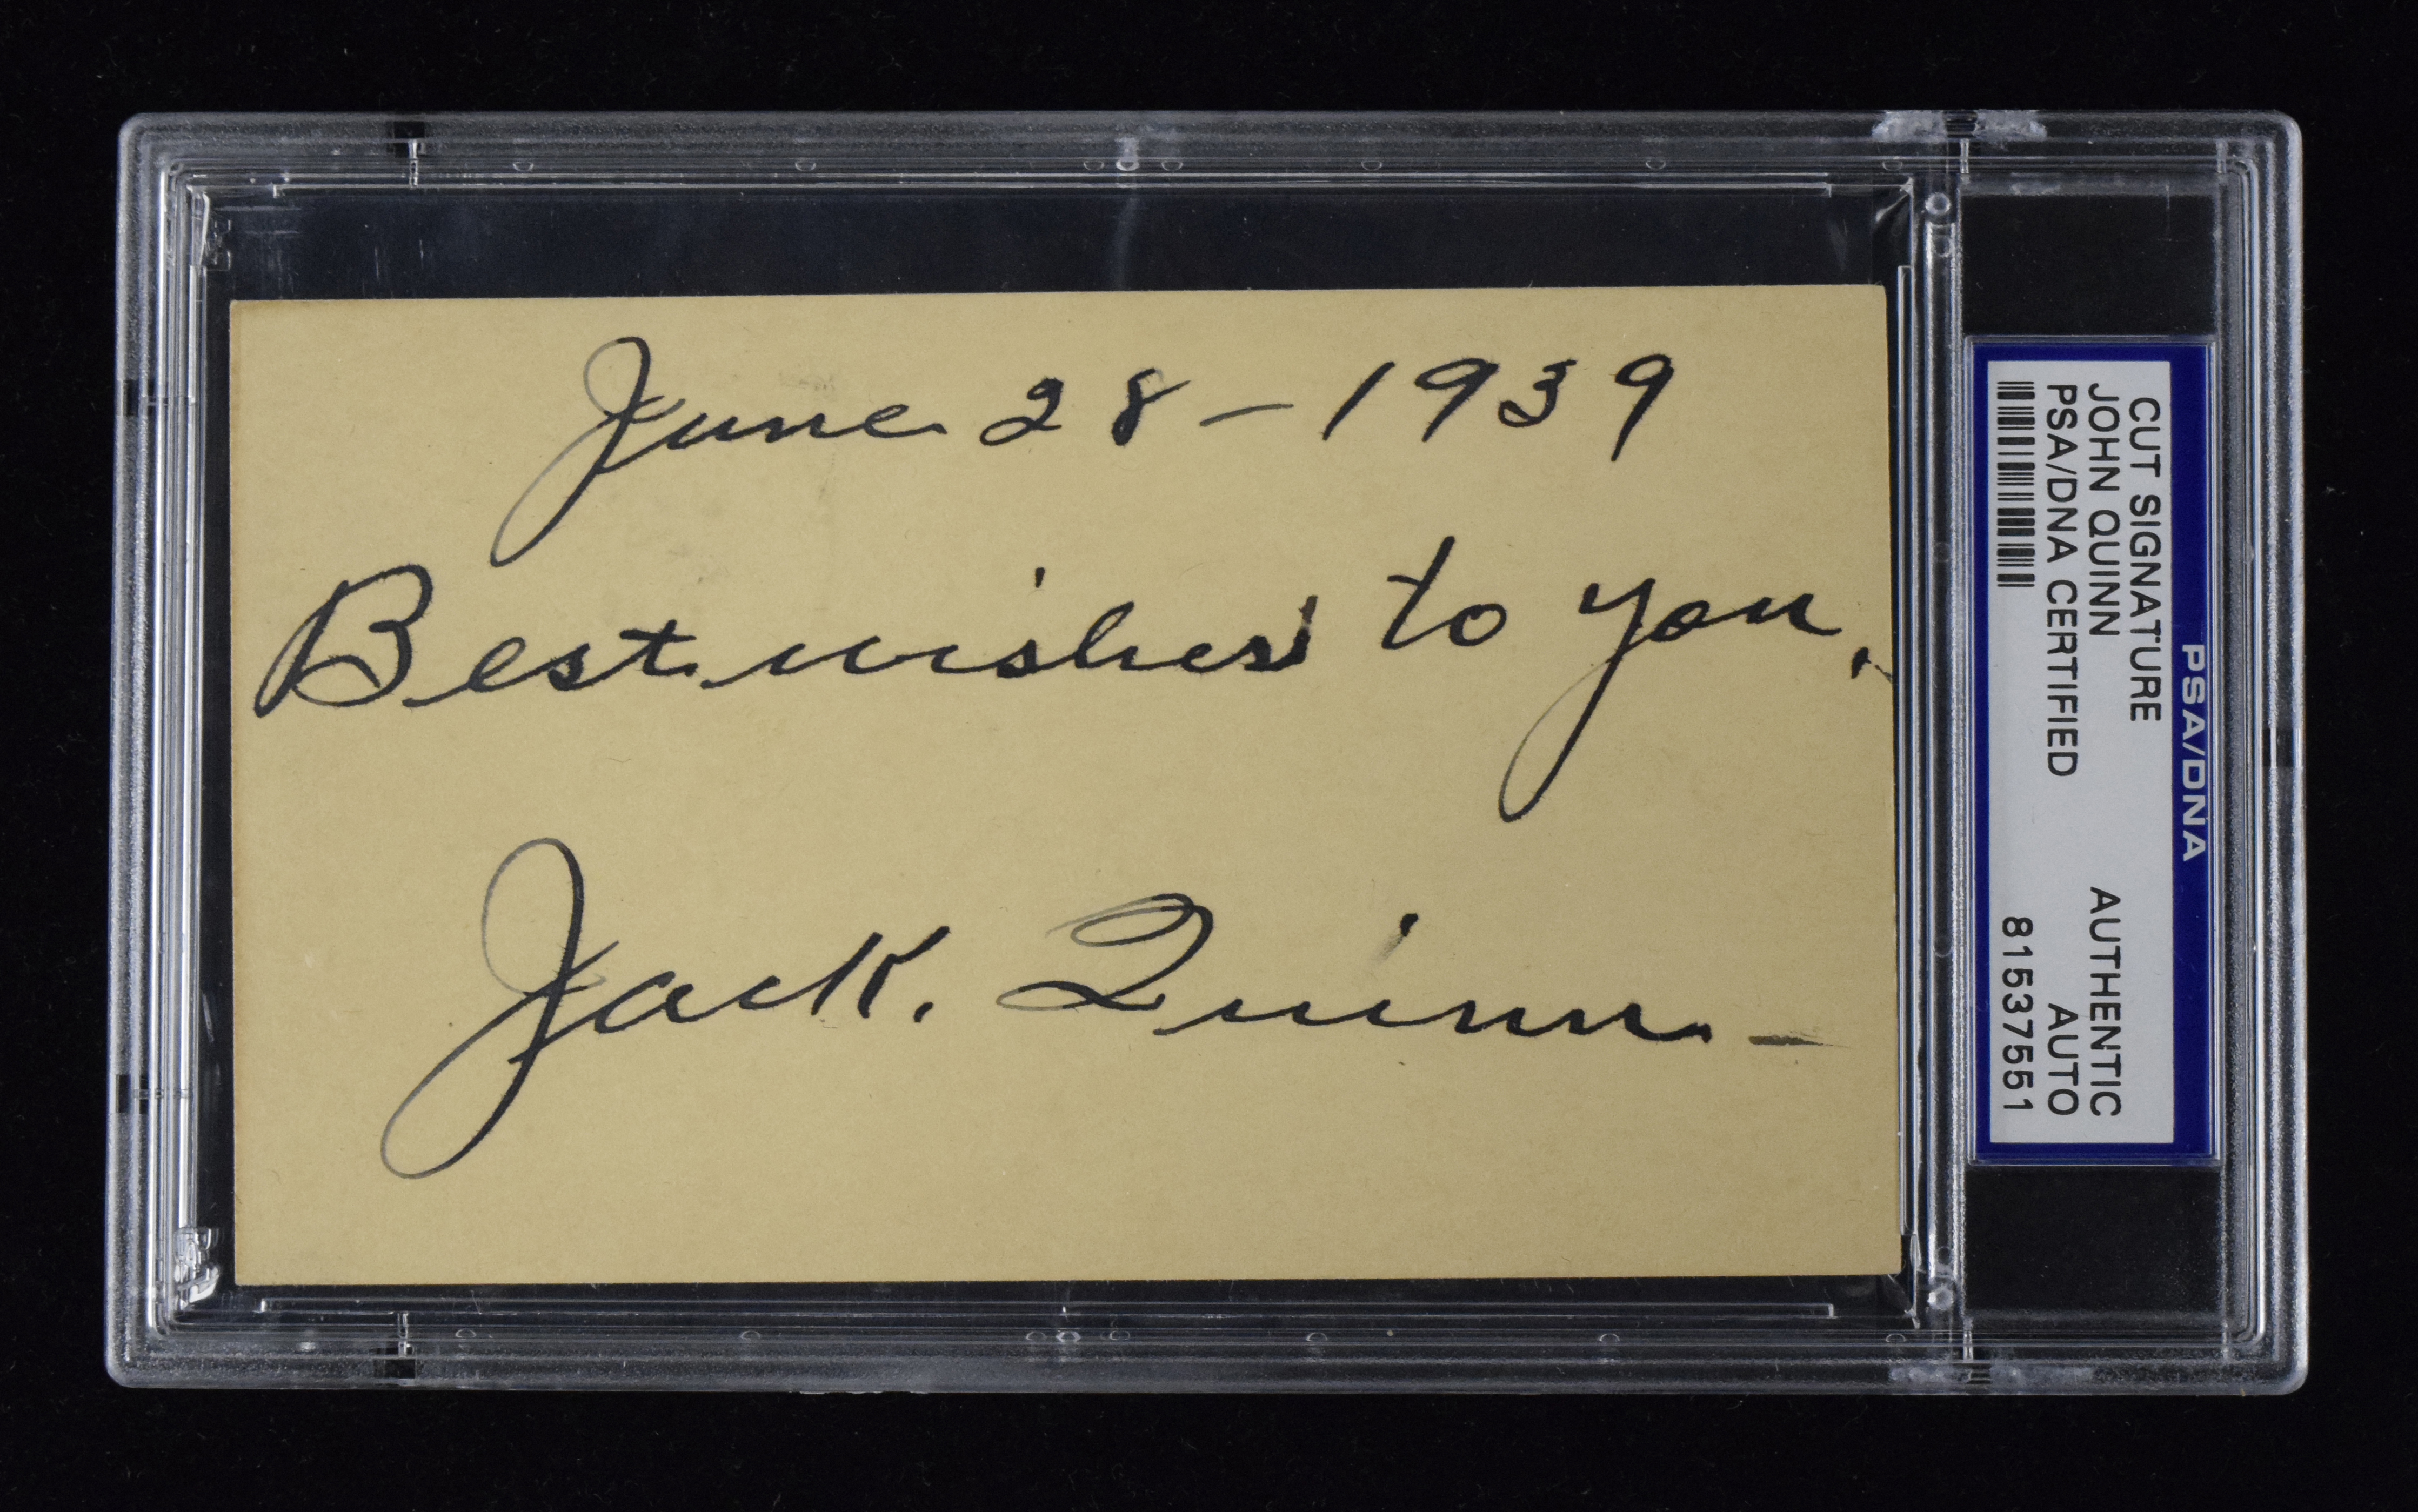 June 28 - 1939
Best wishes to you.
Jack. Quinn -
PSA/DNA
CUT SIGNATURE
JOHN QUINN AUTHENTIC
PSA/DNA CERTIFIED AUTO
81537551